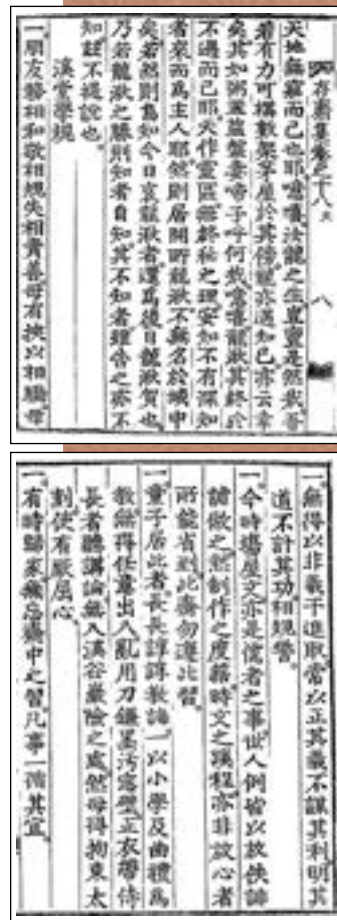 存齋集卷之十八 八
天地無窮而已也耶噫嘻泠龍之生豈亶是然哉吾
若有力可構數架茅屋於其傍龍亦遇知己亦云幸
矣其如粥鹽盤妻啼子呼何哉噫嘻龍湫其終於
不遇而已耶天作靈區無終秘之理安知不有深知
者來而爲主人耶然則居開所龍湫不無名於域中
矣若然則焉知今日哀龍湫者還爲後日龍湫賀也
乃若龍湫之勝則知者自知其不知者雖告之亦不
知玆不提說也
溪堂學規
一朋友務相和敬相規失相責善毋有挾以相驕毋
一無得以非義干進取常以正其義不謀其利明其
道不計其功相規警
一今時場屋文亦是儒者之事世人例皆以放佚誹
謔做之然制作之度藉時文之蹊程亦非放心者
所能省到此齋勿遵此習
一童子居此者長長諄諄敎誨一以小學及曲禮爲
敎無得任意出入亂用刀鎌墨汚窓壁正衣帶侍
長者聽講論無入溪谷巖險之處然毋得拘束太
刻使有厭屈心
一有時歸家無忘齋中之習凡事一循其宜